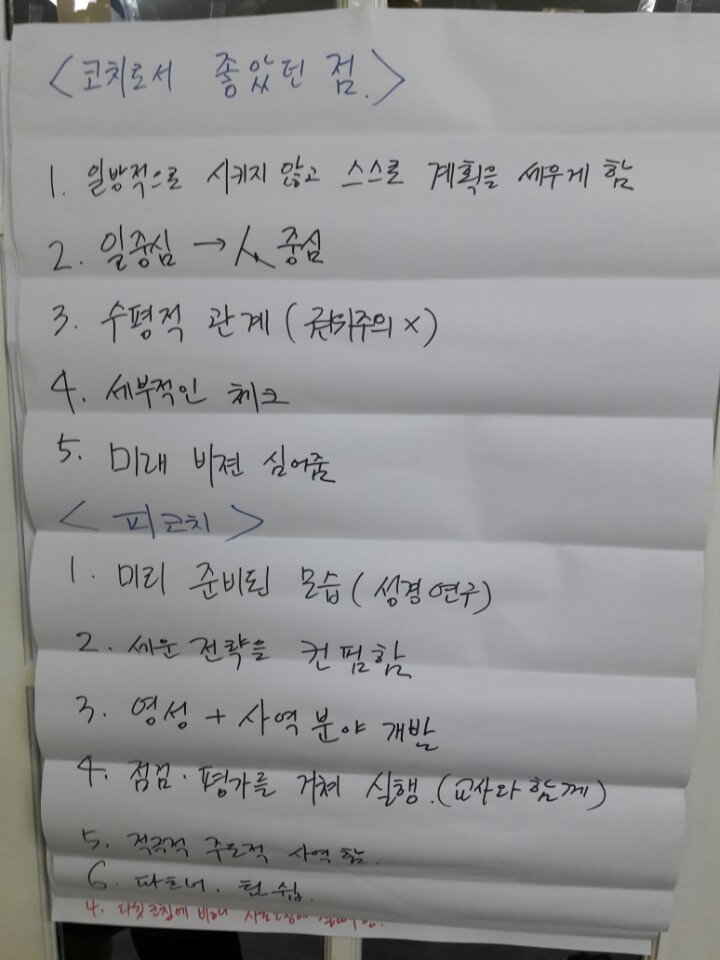 <코치로서 좋았던 점.>
1. 일방적으로 시키지 않고 스스로 계획을 세우게 함
2. 일중심 → 人 중심
3. 수평적 관계 (권위주의 ×)
4. 세부적인 체크
5. 미래 비젼 심어줌
<피코치>
1. 미리 준비된 모습 (성경연구)
2. 세운 전략을 컨펌함
3. 영성 + 사역 분야 개발
4. 점검·평가를 거쳐 실행.(교사와 함께)
5. 적극적 주도적 사역 함.
6. 파트너. 쉽.
4. 비해